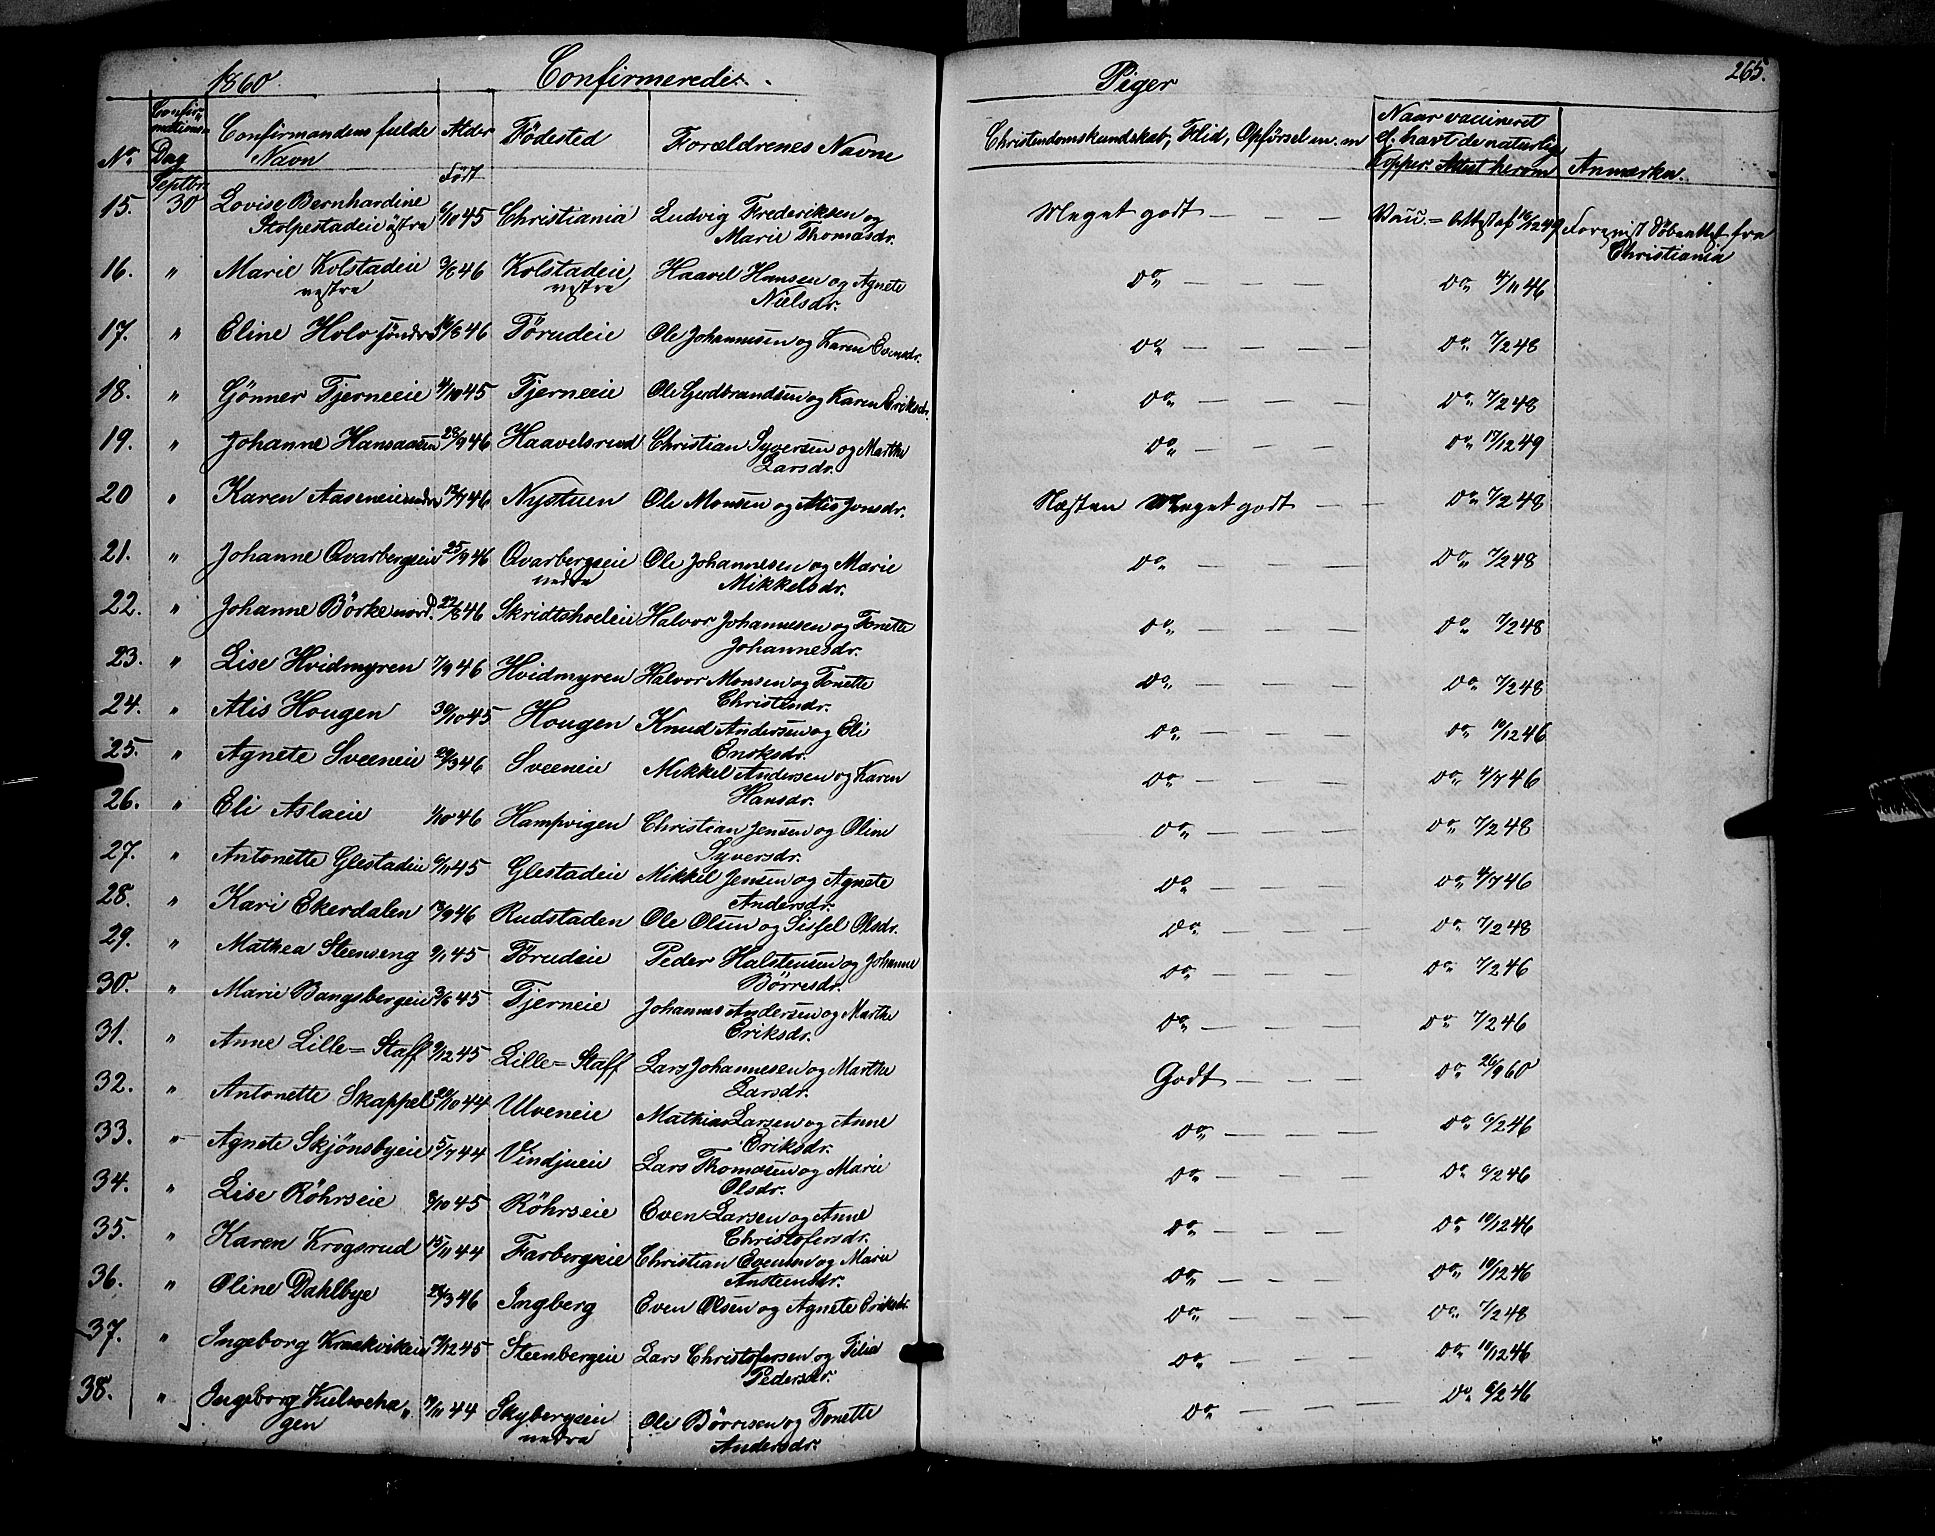 1860. Confirmerede. Piger 265.
No. Confirmations Dag Confirmandens fulde Navn Alder Født Fødested Forældrenes Navne Christendomskundskab, Flid, Opførsel m. m Naar vaccineret el. havt de naturlige Kopper. Attest herom Anmærkn.
Septbr.
15. 30 Lovise Bernhardine 6/10 45 Christiania Ludvig Frederiksen og Meget godt — — — Vacc. = Attest af 16/12 49 Forevist Døbeattest fra
Stolpestadeie østra Marie Thomasdr. Christiania
16. " Marie Kolstadeie 3/8 46 Kolstadeie Haavel Hansen og Agnete Do — — — — Do 4/11 46
vestre vestre Nielsdr.
17. " Eline Holo søndre 16/8 46 Tørudeie Ole Johannesen og Karen Evensdr. Do — — — — Do 7/2 48
18. " Gønner Tjerneeie 4/10 45 Tjerneeie Ole Gudbrandsen og Karen Eriksdr. Do — — — — Do 7/2 48
19. " Johanne Hansaasen 28/9 46 Haavelsrud Christian Syversen og Marthe Do — — — — Do 17/12 49
Larsdr.
20 " Karen Aasmeie nedre 12/7 46 Nystuen Ole Monsen og Alis Jonsdr. Næsten Meget godt — — Do 7/2 48
21. " Johanne Qvarbergseie 25/9 46 Qvarbergseie Ole Johannesen og Marie Do — — — — Do 7/2 48
nedra Mikkelsdr.
22. " Johanne Börke nord. 22/8 46 Skridtshoeleie Halvor Johannesen og Tonette Do — — — — Do 7/2 48
Johannesdr.
23. " Lise Hvidmyren 7/9 46 Hvidmyren Halvor Monsen og Tonette Do — — — — Do 7/2 48
Christendr.
24. " Alis Hougen 30/10 45 Hougen Knud Andersen og Eli Do — — — — Do 19/12 46
Eriksdr.
25. " Agnete Sveeneie 29/3 46 Sveeneie Mikkel Andersen og Karen Do — — — — Do 4/7 46
Hansdr.
26. " Eli Aslaeie 1/10 46 Hampvigen Christian Jensen og Oline Do — — — — Do 7/2 48
Syversdr.
27. " Antonette Glestadeie 6/11 45 Glestadeie Mikkel Jensen og Agnete Do — — — — Do 4/7 46
Andersdr.
28. " Kari Ekerdalen 13/9 46 Rudstaden Ole Olsen og Sissel Olsdr. Do — — — — Do 7/2 48
29. " Mathea Steenseng 9/1 45 Tørudeie Peder Halstensen og Johanne Do — — — — Do 7/2 46
Børresdr.
30. " Marie Bangsbergeie 3/6 45 Tjerneie Johannes Andersen og Marthe Do — — — — Do 7/2 46
Eriksdr.
31. " Anne Lille=Staff 9/12 45 Lille=Staff Lars Johannesen og Marthe Godt — — — Do 26/9 60
Larsdr.
32. " Antonette Skappel 20/10 44 Ulveneie Mathias Larsen og Anne Do — — — — Do 6/2 46
Eriksdr.
33. " Agnete Skjönsbyeie 5/7 44 Vindjueie Lars Thomasen og Marie Do — — — — Do 6/2 46
Olsdr.
34. " Lise Röhrseie 8/10 45 Röhrseie Even Larsen og Anne Do — — — — Do 19/12 46
Christofersdr.
35. " Karen Krogsrud 15/11 44 Farbergseie Christian Evensen og Marie Do — — — — Do 19/12 46
Anstensdr.
36. " Oline Dahlbye 28/3 46 Ingberg Even Olsen og Agnete Eriksdr. Do — — — — Do 7/2 48
37. " Ingeborg Kraakvikeie 17/12 45 Steenbergeie Lars Christofersen og Tilia Do — — — — Do 19/12 46
Pedersdr.
38. " Ingeborg Kulseha= 17/11 44 Skybergseie Ole Börresen og Tonette Do — — — — Do 6/2 46
gen nedra Andersdr.